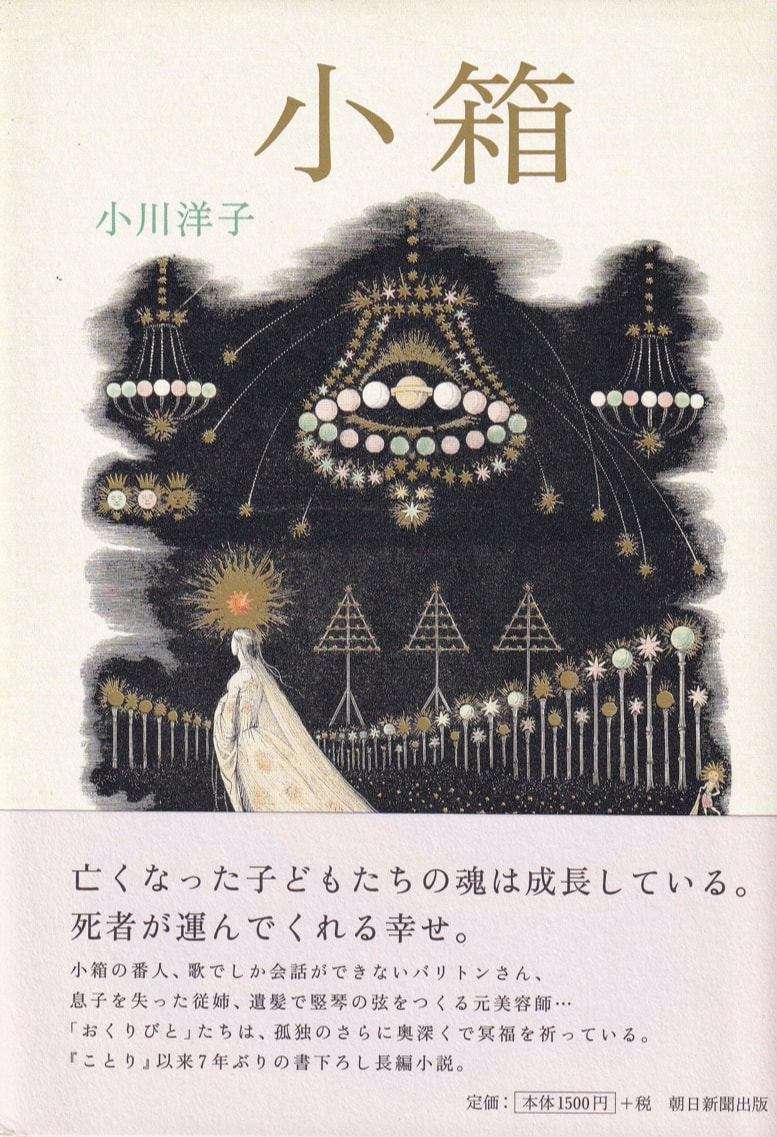 小箱
小川洋子
亡くなった子どもたちの魂は成長している。
死者が運んでくれる幸せ。
小箱の番人、歌でしか会話ができないバリトンさん、
息子を失った従姉、遺髪で竪琴の弦をつくる元美容師…
「おくりびと」たちは、孤独のさらに奥深くで冥福を祈っている。
『ことり』以来7年ぶりの書下ろし長編小説。
定価：本体1500円＋税　朝日新聞出版